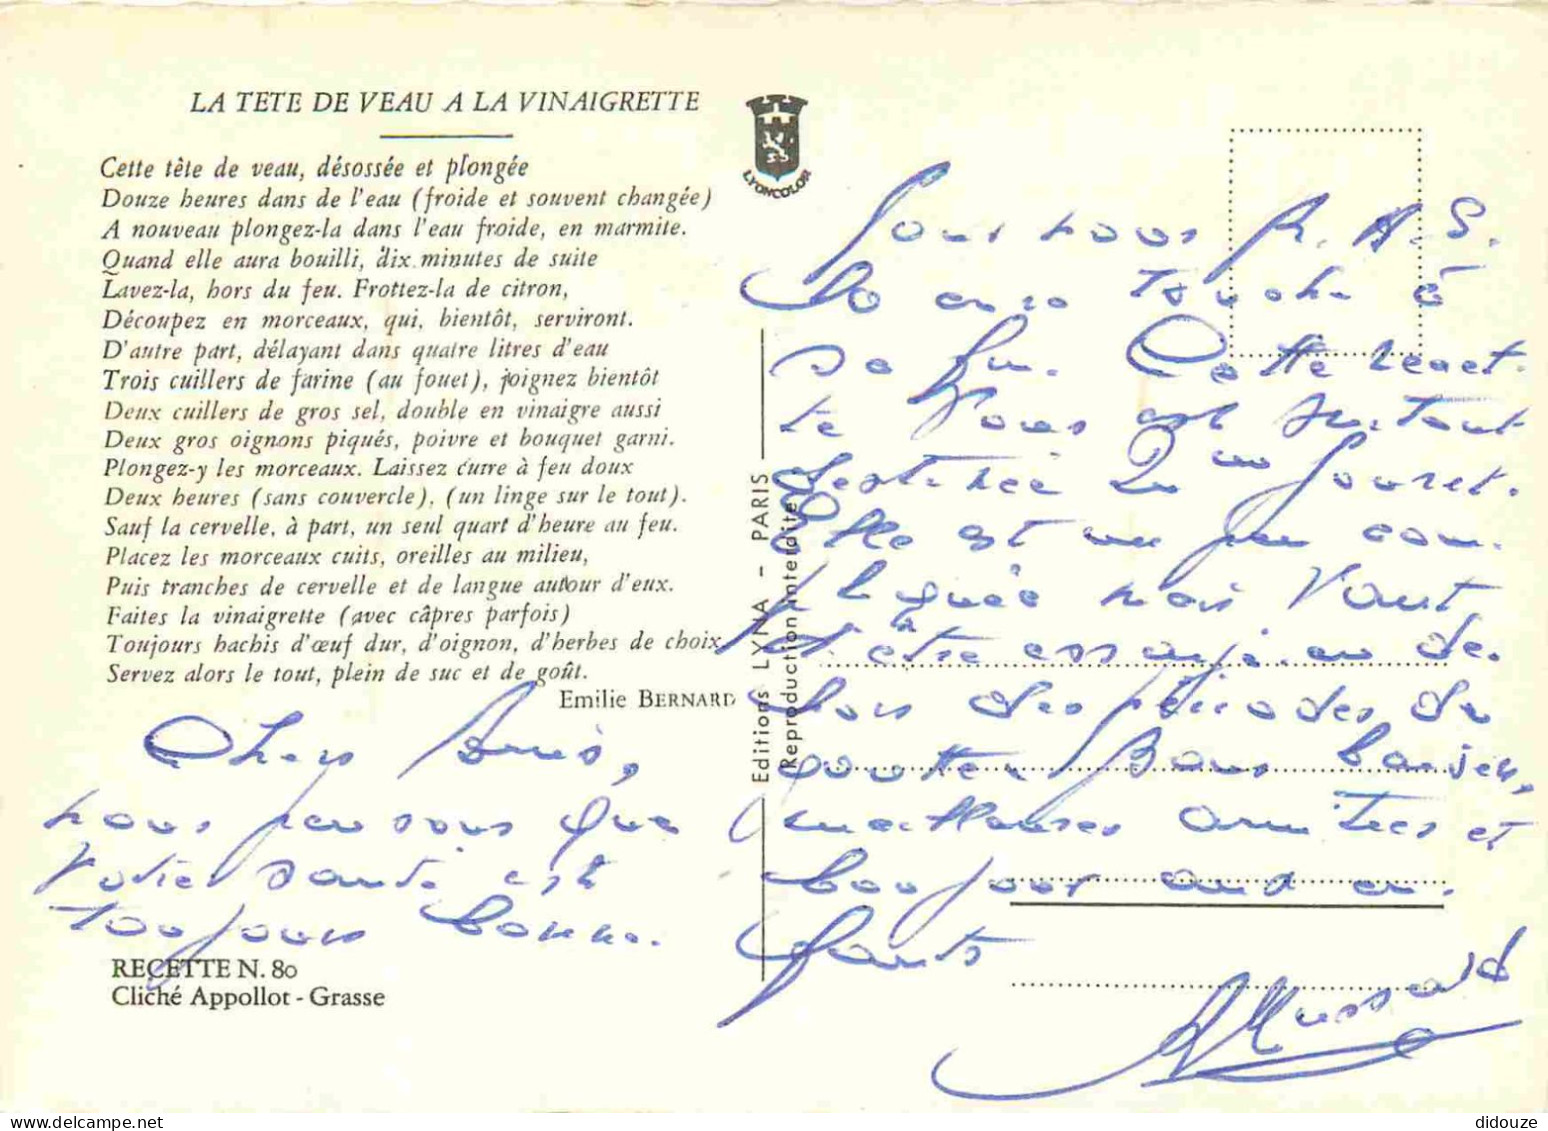 LA TETE DE VEAU A LA VINAIGRETTE
Cette tête de veau, désossée et plongée
Douze heures dans de l'eau (froide et souvent changée)
A nouveau plongez-la dans l'eau froide, en marmite.
Quand elle aura bouilli, dix minutes de suite
Lavez-la, hors du feu. Frottez-la de citron,
Découpez en morceaux, qui, bientôt, serviront.
D'autre part, délayant dans quatre litres d'eau
Trois cuillers de farine (au fouet), joignez bientôt
Deux cuillers de gros sel, double en vinaigre aussi
Deux gros oignons piqués, poivre et bouquet garni.
Plongez-y les morceaux. Laissez cuire à feu doux
Deux heures (sans couvercle), (un linge sur le tout).
Sauf la cervelle, à part, un seul quart d'heure au feu.
Placez les morceaux cuits, oreilles au milieu,
Puis tranches de cervelle et de langue autour d'eux.
Faites la vinaigrette (avec câpres parfois)
Toujours hachis d'œuf dur, d'oignon, d'herbes de choix.
Servez alors le tout, plein de suc et de goût.
Emilie BERNARD
Chers Amis,
nous pensons que
votre santé est
toujours bonne.
RECETTE N. 80
Cliché Appollot - Grasse
LYONCOLOR
Editions LYNA - PARIS
Reproduction interdite
Pour nous R.A.S.
La cure touche à
sa fin. Cette recet.
te vous est surtout
destinée
Elle est un peu com.
pliquée mais vaut
d'être essayée en de.
hors des périodes de
goutte. Bons baisers,
meilleures amitiés et
bonjour aux en.
fants
didouze